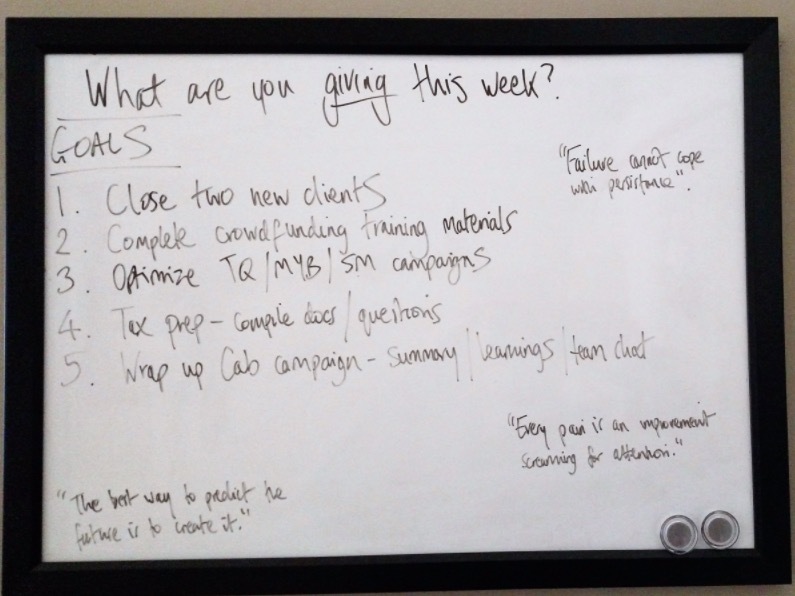 What are you giving this week?
GOALS
"Failure cannot cope
with persistance".
1. Close two new clients
2. Complete crowdfunding training materials
3. Optimize TQ/MYB/SM campaigns
4. Tax prep - compile docs/questions
5. Wrap up Cab campaign - summary/learnings/team chat
"Every pain is an improvement
screaming for attention."
"The best way to predict the
future is to create it."